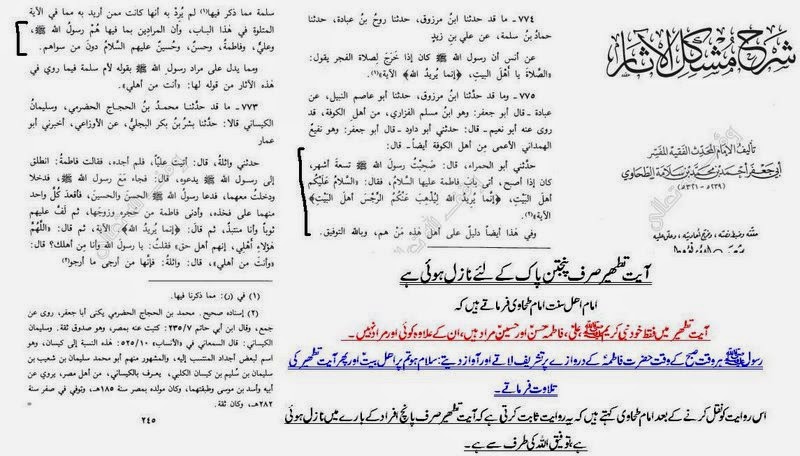 شرح مشكل الآثار
تأليف الإمام المحدث الفقيه المفسر
أبي جعفر أحمد بن محمد بن سلامة الطحاوي
(٢٣٩ هـ - ٣٢١ هـ)
حققه وضبط نصه، وخرج أحاديثه، وعلق عليه
٧٧٤ - ما قد حدثنا ابنُ مرزوق، حدثنا روحُ بنُ عبادة، حدثنا
حمادُ بنُ سلمة، عن علي بنِ زيدٍ
عن أنس أن رسول الله ﷺ كان إذا خَرَجَ لِصلاة الفجر يقول:
«الصَّلاةَ يا أَهْلَ البَيْتِ، ﴿إنَّما يُرِيدُ اللهُ﴾ الآية»(١).
٧٧٥ - وما قد حدثنا ابن مرزوق، حدثنا أبو عاصم النبيل، عن
عبادة - قال أبو جعفر: وهو ابنُ مسلم الفزاري، من أهل الكوفة، قد
روى عنه أبو نعيم - قال: حدثني أبو داود - قال أبو جعفر: وهو نفيعٌ
الهمداني الأعمى من أهل الكوفة أيضاً - قال:
حدَّثني أبو الحمراء، قال: صَحِبْتُ رسول الله ﷺ تسعةَ أشهر،
كان إذا أصبح، أتى بابَ فاطمة عليها السلامُ، فقال: «السلامُ عَلَيْكُم
أهلَ البَيْتِ، ﴿إنَّما يُرِيدُ اللهُ لِيُذْهِبَ عَنْكُمُ الرِّجْسَ أهلَ البَيْتِ﴾
الآية»(٢).
وفي هذا أيضاً دليلٌ على أهل هٰذه مَنْ هم، وبالله التوفيق.
سلمة مما ذكر فيها(١) لم يُرِدْ به أنها كانت ممن أريد به مما في الآية
المتلوة في هٰذا الباب، وأن المرادِين بما فيها هُمْ رسولُ الله ﷺ،
وعليٌّ، وفاطمةُ، وحسنٌ، وحُسينٌ عليهم السَّلامُ دونَ من سواهم.
ومما يدل على مراد رسولِ الله ﷺ بقوله لأم سلمة فيما روي في
هٰذه الآثار من قوله لها: «أنت من أهلي».
٧٧٣ - ما قد حدثنا محمدُ بنُ الحجاج الحضرمي، وسليمانُ
الكيساني قالا: حدَّثنا بِشْرُ بنُ بكر البجليُّ، عن الأوزاعي، أخبرني أبو
عمار
حدثني واثلةُ، قال: أتيتُ عليّاً، فلم أجده، فقالت فاطمةُ: انطلق
إلى رسول الله ﷺ يدعوه، قال: فجاء مَعَ رسول الله ﷺ، فدخلا
ودخلتُ معهما، فدعا رسولُ الله ﷺ الحسنَ والحسينَ، فأقعدَ كُلَّ واحد
منهما على فخذه، وأدنى فاطمةَ من حجره وزوجَها، ثم لَفَّ عليهم
ثوباً وأنا منتبذٌ، ثم قال: ﴿إنَّما يُرِيدُ اللهُ﴾ الآية، ثم قال: «اللَّهُمَّ
هٰؤلاءِ أَهْلِي، إنهم أهل حق» فقلتُ: يا رسول الله وأنا مِن أهلك؟ قال:
«وأنتَ من أهلي»، قال واثلةُ: فإنَّها من أرجى ما أرجو(٢)
(١) في (ر): مما ذكرنا فيها.
(٢) إسناده صحيح. محمد بن الحجاج الحضرمي يكنى أبا جعفر، روى عن
جمع، وقال ابن أبي حاتم ٢٣٥/٧: كتبت عنه بمصر، وهو صدوق ثقة. وسليمان
الكيساني: قال السمعاني في «الأنساب» ٥٢٥/١٠: هذه النسبة إلى كيسان، وهو
اسم لبعض أجداد المنتسب إليه، والمشهور منهم أبو محمد سليمان بن شعيب بن
سليمان بن سليم بن كيسان الكلبي، يعرف بالكيساني، من أهل مصر، يروي عن
أبيه وأسد بن موسى وطبقتهما، وكان مولده بمصر سنة ١٨٥هـ، وتوفي في صفر سنة
٢٨٢هـ، وكان ثقة.
٢٤٥
آیت تطہیر صرف پنجتن پاک کے لئے نازل ہوئی ہے
امام اھل سنت امام طحاوی فرماتے ہیں کہ
آیت تطہیر میں فقط خود نبی کریم ﷺ علیؑ، فاطمہؑ حسنؑ اور حسینؑ مراد ہیں، ان کے علاوہ کوئی اور مراد نہیں۔
رسول ﷺ ہر وقت صبح کے وقت حضرت فاطمہؑ کے دروازے پر تشریف لاتے اور آواز دیتے: سلام ہو تم پر اھل بیت اور پھر آیت تطہیر کی
تلاوت فرماتے۔
اس روایت کو نقل کرنے کے بعد امام طحاوی کہتے ہیں کہ یہ روایت ثابت کرتی ہے کہ آیت تطہیر صرف پانچ افراد کے بارے میں نازل ہوئی
ہے، توفیق اللہ کی طرف سے ہے۔